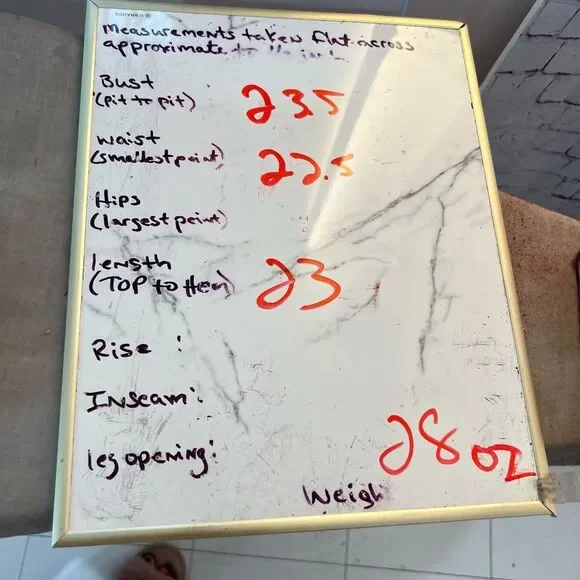 U BRANDS
measurements taken flat across
approximate to
Bust
(pit to pit) 235
waist
(smallest point) 22.5
Hips
(largest point)
length
(TOP to Hem) 23
Rise :
Inseam:
leg opening:
28 oz
Weigh